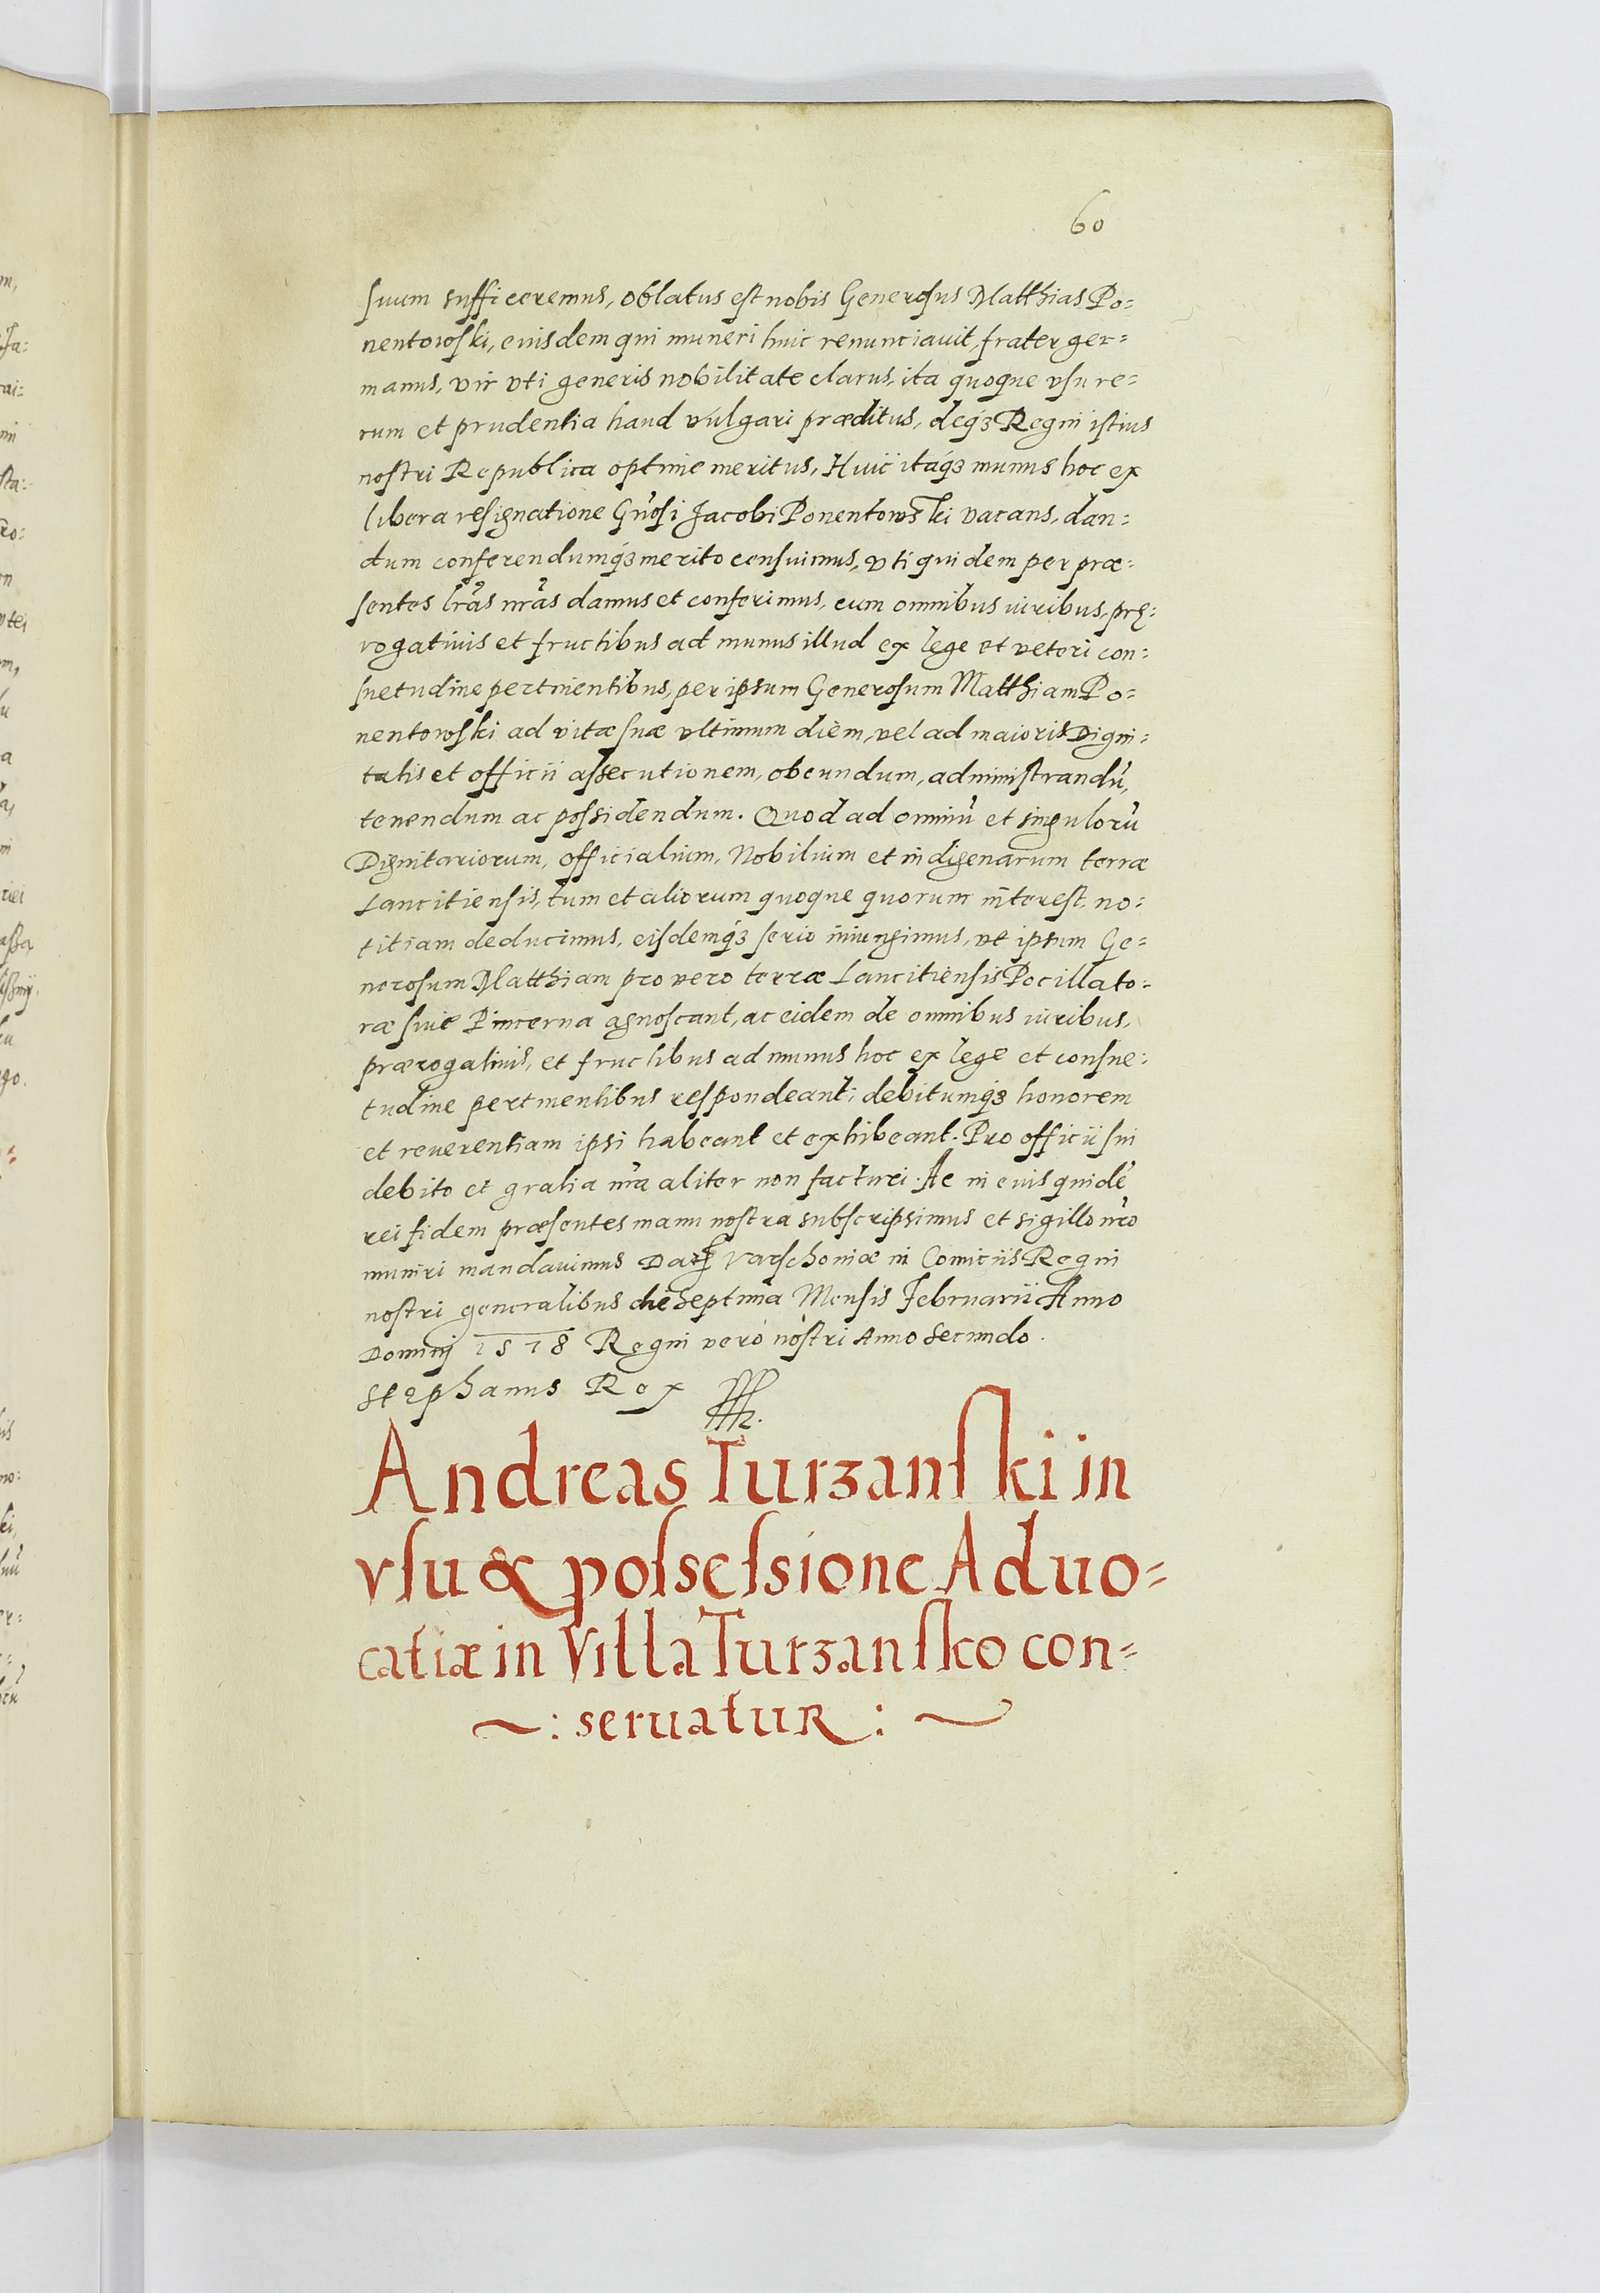 60
suum sufficeremus, oblatus est nobis Generosus Matthias Po=
nentowski, eiusdem qui muneri huic renunciauit, frater ger=
manus, vir vti generis nobilitate clarus, ita quoque vsu re=
rum et prudentia haud vulgari præditus, deq́3 Regni istius
nostri Republica optime meritus, Huic itaq́3 munus hoc ex
libera resignatione Gnosi Jacobi Ponentowski vacans, dan=
dum conferendumq́3 merito censuimus, vti quidem per præ=
sentes lras nras damus et conferimus, cum omnibus iuribus, prę=
rogatiuis et fructibus ad munus illud ex lege et veteri con=
suetudine pertinentibus, per ipsum Generosum Matthiam Po=
nentowski ad vitæ suæ vltimum diem, vel ad maioris Digni=
tatis et officii assecutionem, obeundum, administrandū,
tenendum ac possidendum. Quod ad omniū et singulorū
Dignitariorum, officialium, Nobilium et indigenarum terræ
Lancitiensis, tum et aliorum quoque quorum interest, no=
titiam deducimus, eisdemq́3 serio iniungimus, vt ipsum Ge=
nerosum Matthiam pro vero terræ Lancitiensis Pocillato=
ræ siue Pincerna agnoscant, ac eidem de omnibus iuribus,
prærogatiuis, et fructibus ad munus hoc ex lege et consue=
tudine pertinentibus respondeant, debitumq́3 honorem
et reuerentiam ipsi habeant et exhibeant. Pro officii sui
debito et gratia nra aliter non facturi. Ac in euis quidē
rei fidem præsentes manu nostra subscripsimus et sigillo nro
muniri mandauimus Dat Varschouiæ in Comiciis Regni
nostri generalibus die septima Mensis Februarii Anno
Dominj 1578 Regni vero nostri Anno secundo.
Stephanus Rex
Andreas Turzanski in
vsu & possessione Aduo=
catiæ in Villa Turzansko con=
~: seruatur : ~